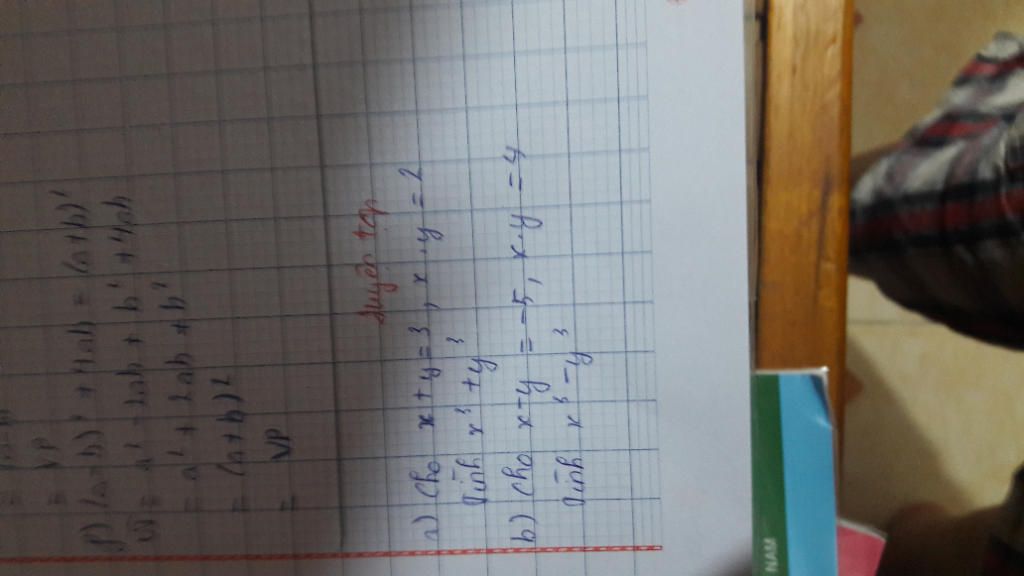 = VP
f) (a-b)² + 4ab = (a+b)²
VT = a² - 2ab + b² + 4ab
= a² + 2ab + b²
= (a+b)²
= VP
Luyện tập
a) Cho x+y=3, x.y=2
Tính x³+y³
b) Cho x-y = -5, x.y = 4
Tính x³-y³
NAM